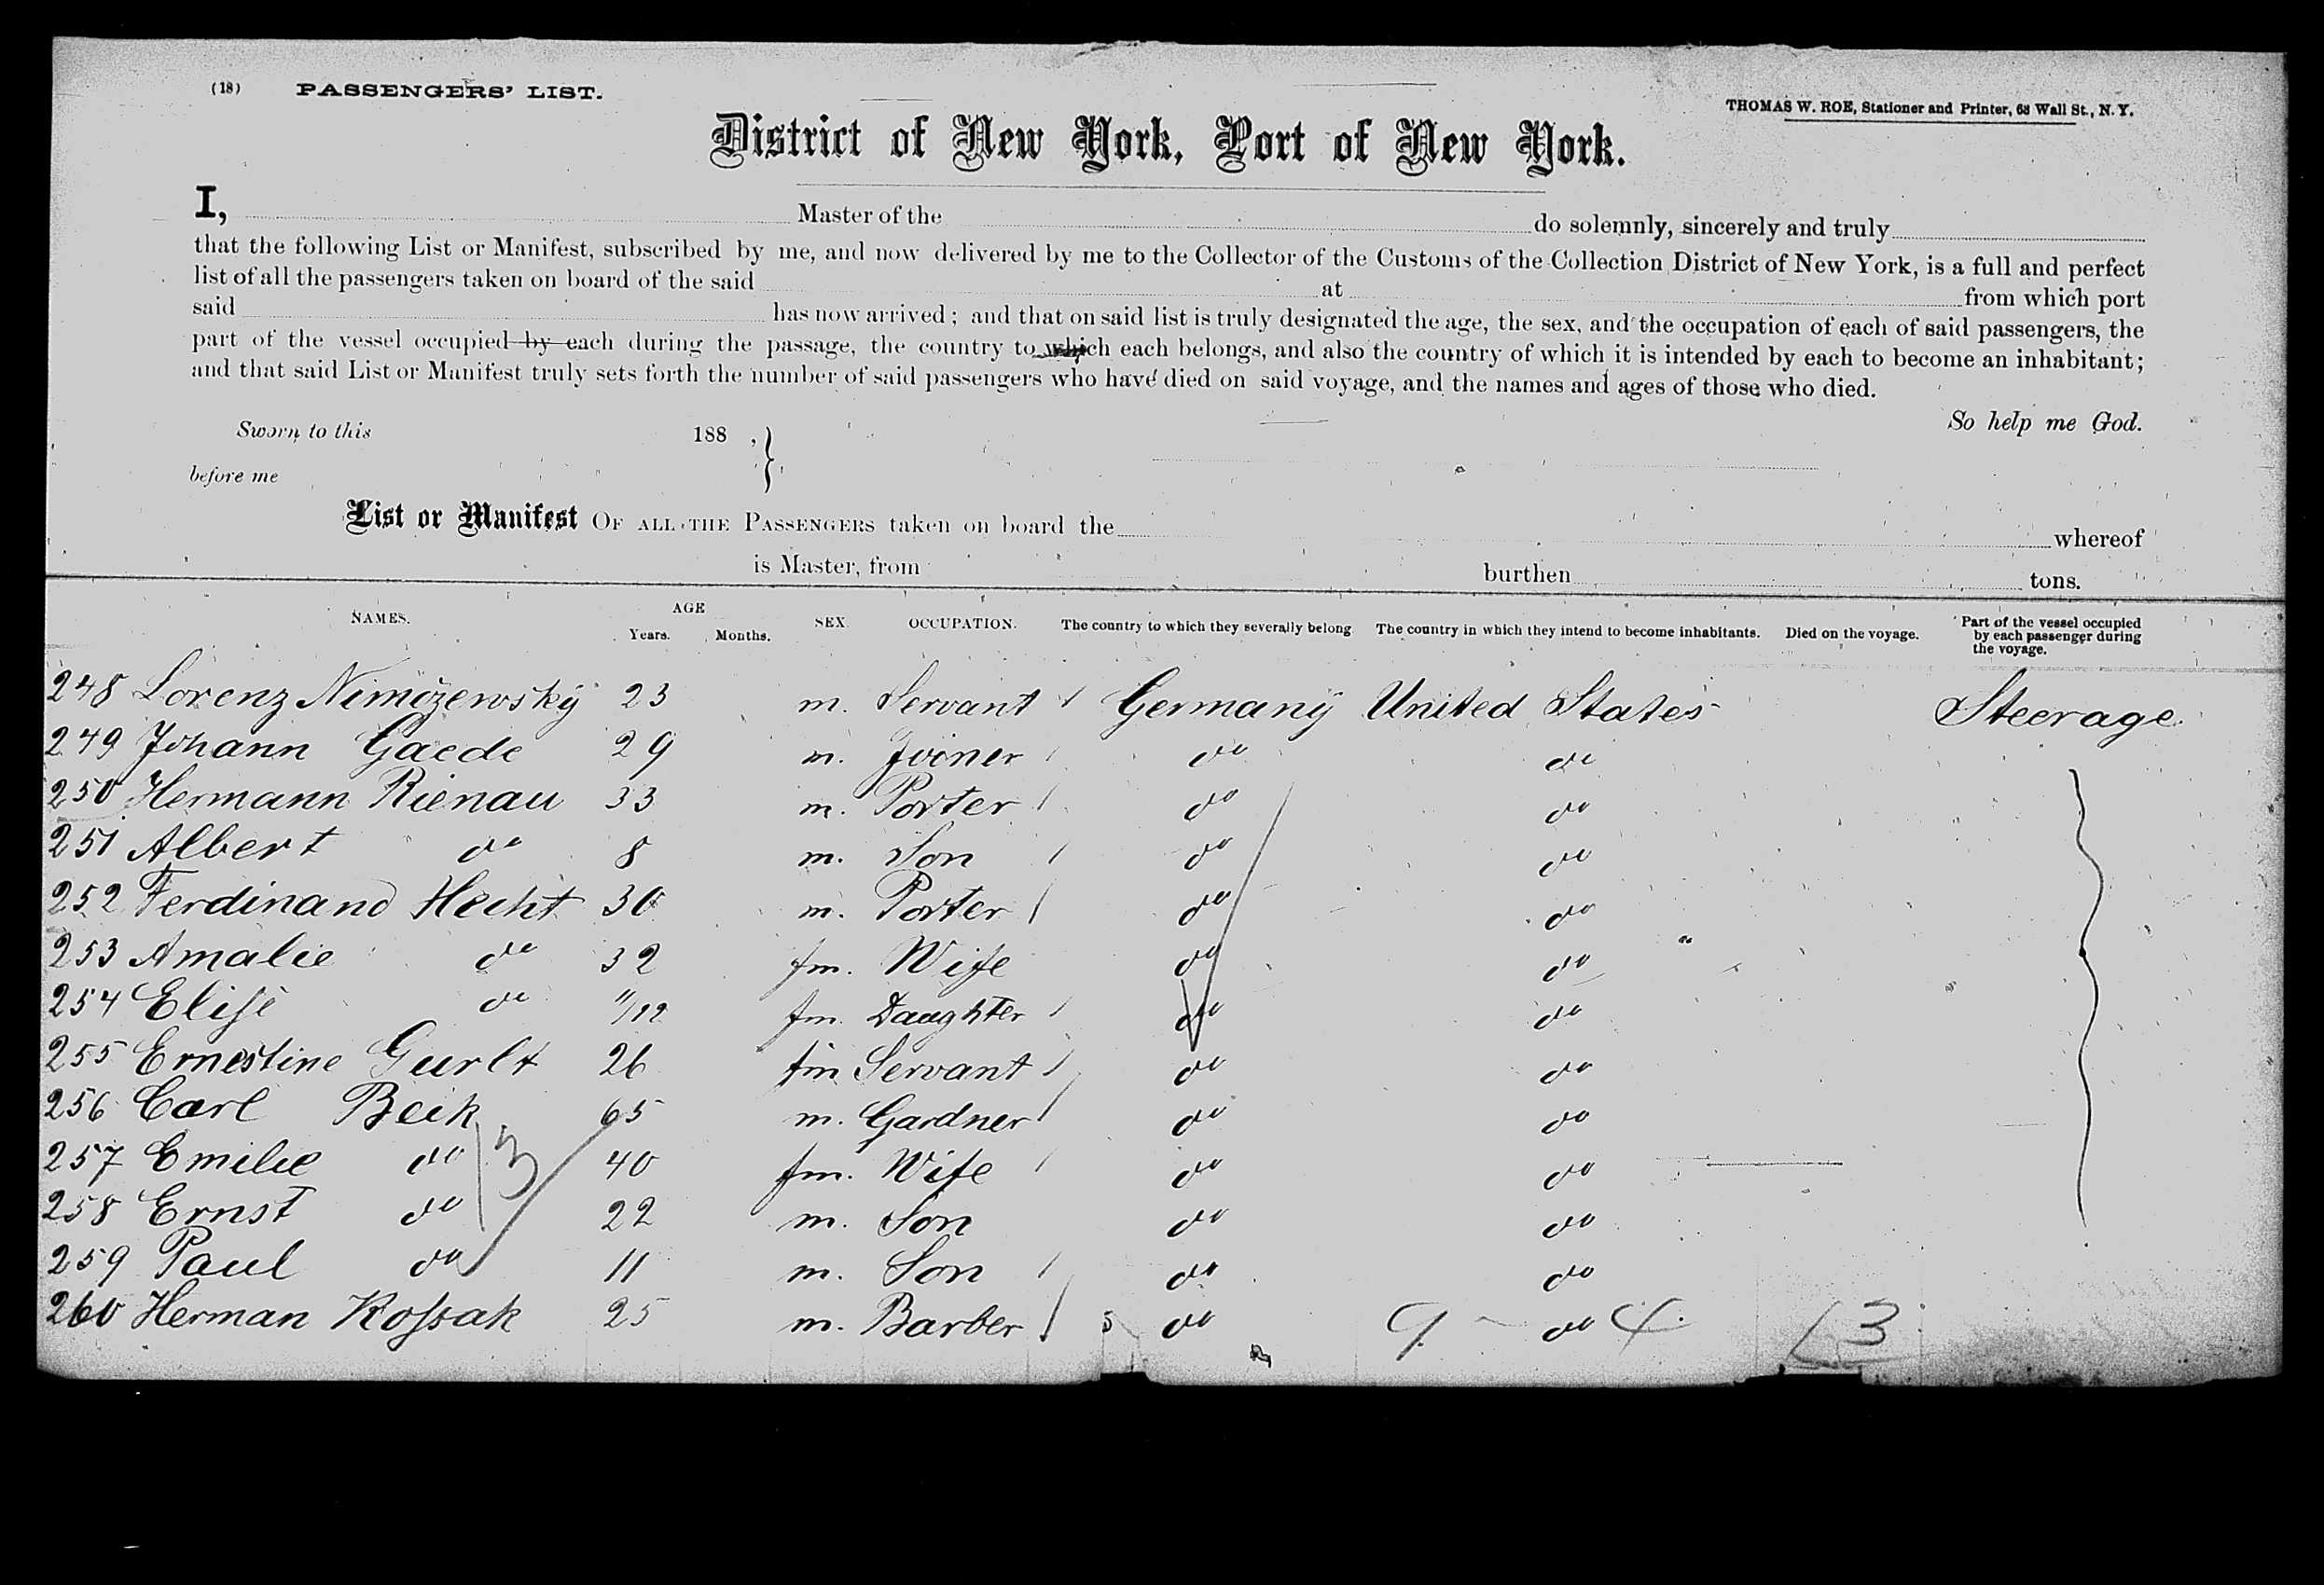 (18) PASSENGERS' LIST.
THOMAS W. ROE, Stationer and Printer, 68 Wall St., N. Y.
District of New York, Port of New York.
I, Master of the do solemnly, sincerely and truly
that the following List or Manifest, subscribed by me, and now delivered by me to the Collector of the Customs of the Collection District of New York, is a full and perfect
list of all the passengers taken on board of the said at from which port
said has now arrived; and that on said list is truly designated the age, the sex, and the occupation of each of said passengers, the
part of the vessel occupied by each during the passage, the country to which each belongs, and also the country of which it is intended by each to become an inhabitant;
and that said List or Manifest truly sets forth the number of said passengers who have died on said voyage, and the names and ages of those who died.
So help me God.
Sworn to this 188 ,
before me
List or Manifest OF ALL THE PASSENGERS taken on board the whereof
is Master, from burthen tons.
NAMES. AGE Years. Months. SEX. OCCUPATION. The country to which they severally belong. The country in which they intend to become inhabitants. Died on the voyage. Part of the vessel occupied by each passenger during the voyage.
248 Lorenz Nimozewsky 23 m. Servant Germany United States Steerage
249 Johann Gaede 29 m. Joiner do do
250 Hermann Rienau 33 m. Porter do do
251 Albert do 8 m. Son do do
252 Ferdinand Hecht 30 m. Porter do do
253 Amalie do 32 fm. Wife do do
254 Elise do 11/12 fm. Daughter do do
255 Ernestine Gurlt 26 fm Servant do do
256 Carl Beik 65 m. Gardner do do
257 Emilie do 3 40 fm. Wife do do
258 Ernst do 22 m. Son do do
259 Paul do 11 m. Son do do
260 Herman Kossak 25 m. Barber do 9 do 4 13